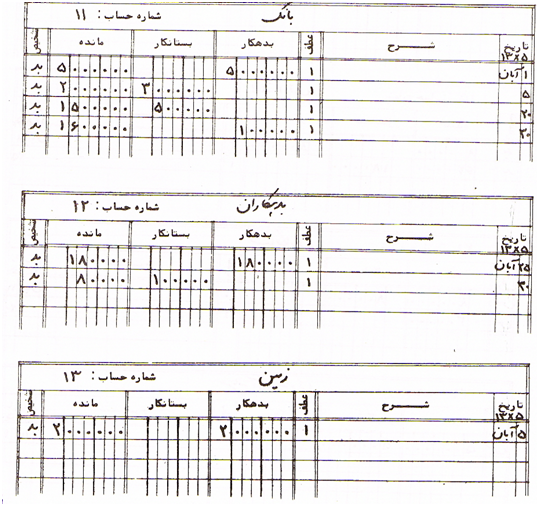 بانک شماره حساب : ۱۱
تاریخ ۱۳X۵ شـــرح عطف بدهکار بستانکار مانده تشخیص
۱ آبان ۱ ۵۰۰۰۰۰۰ ۵۰۰۰۰۰۰ بد
۵ ۱ ۳۰۰۰۰۰۰ ۲۰۰۰۰۰۰ بد
۲۰ ۱ ۵۰۰۰۰۰ ۱۵۰۰۰۰۰ بد
۳۰ ۱ ۱۰۰۰۰۰ ۱۶۰۰۰۰۰ بد
بدهکاران شماره حساب : ۱۲
تاریخ ۱۳X۵ شـــرح عطف بدهکار بستانکار مانده تشخیص
۲۵ آبان ۱ ۱۸۰۰۰۰ ۱۸۰۰۰۰ بد
۳۰ ۱ ۱۰۰۰۰۰ ۸۰۰۰۰ بد
زمین شماره حساب : ۱۳
تاریخ ۱۳X۵ شـــرح عطف بدهکار بستانکار مانده تشخیص
۵ آبان ۱ ۲۰۰۰۰۰۰ ۲۰۰۰۰۰۰ بد